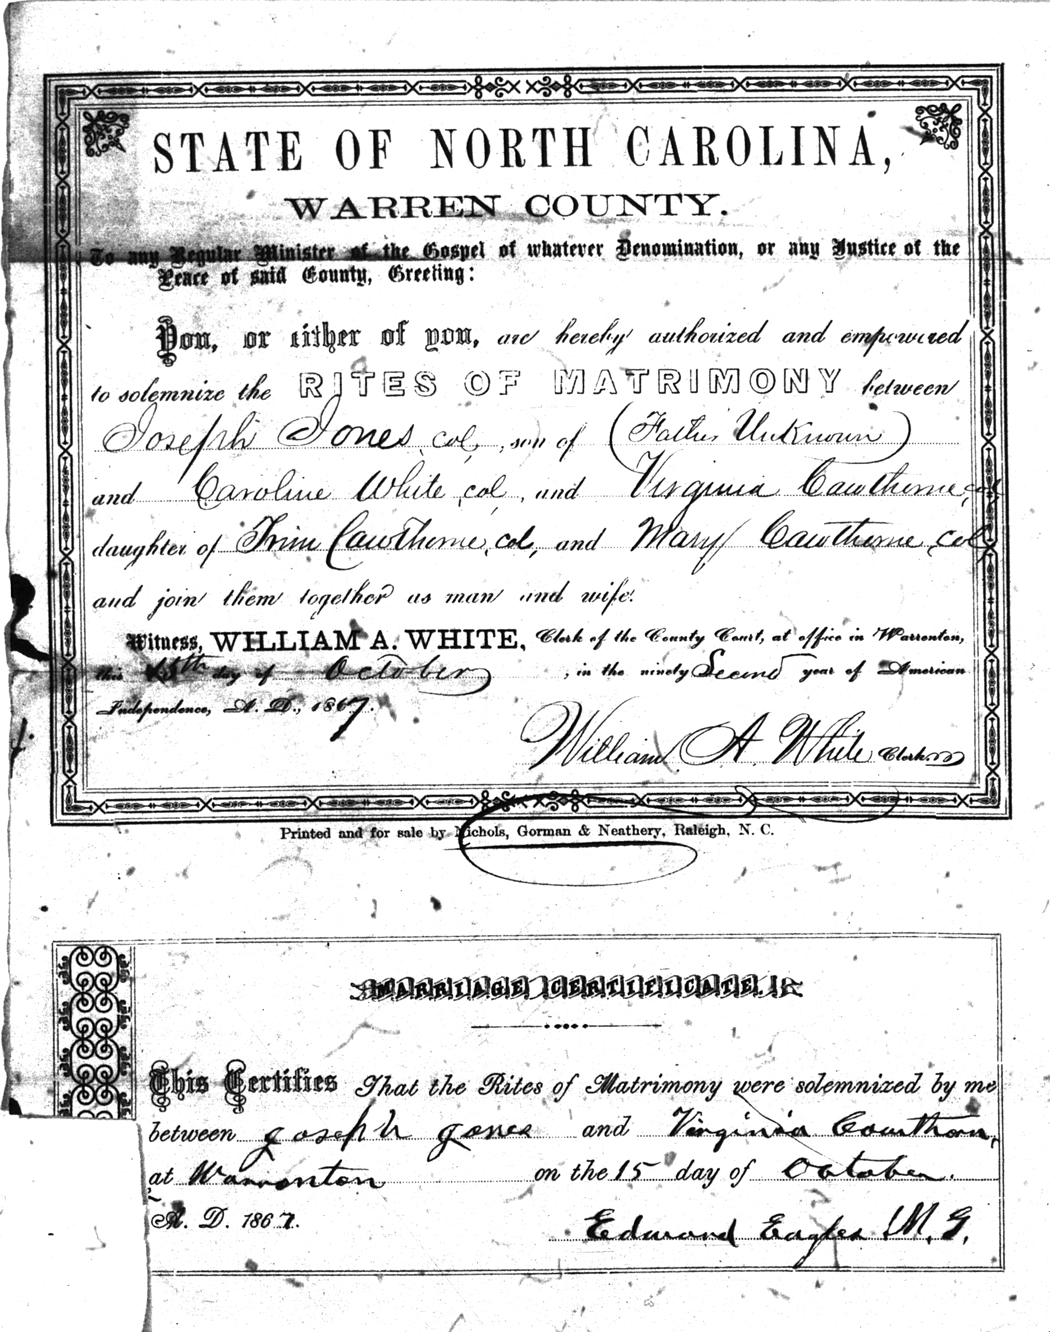 STATE OF NORTH CAROLINA,
WARREN COUNTY.
To any Regular Minister of the Gospel of whatever Denomination, or any Justice of the
Peace of said County, Greeting:
You, or either of you, are hereby authorized and empowered
to solemnize the RITES OF MATRIMONY between
Joseph Jones, col, son of (Father Unknown)
and Caroline White, col, and Virginia Cawthorne, col,
daughter of Cawthorne, col, and Mary Cawthorne, col,
and join them together as man and wife.
Witness, WILLIAM A. WHITE, Clerk of the County Court, at office in Warrenton,
this 15th day of October, in the ninety Second year of American
Independence, A. D., 1867.
William A. White Clerk
Printed and for sale by Nichols, Gorman & Neathery, Raleigh, N. C.
MARRIAGE CERTIFICATE.
This Certifies That the Rites of Matrimony were solemnized by me
between Joseph Jones and Virginia Cawthorn,
at Warrenton on the 15 day of October.
A. D. 1867.
Edmund Eagles M. G.